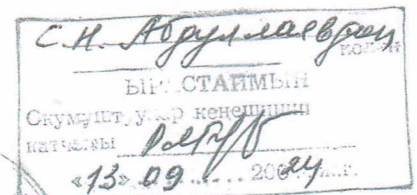 С.Н. Абдуллаевдин
колун
ЫРАСТАЙМЫН
Окумуштуулар кеңешинин
катчысы
«13» 09 2024 ж.